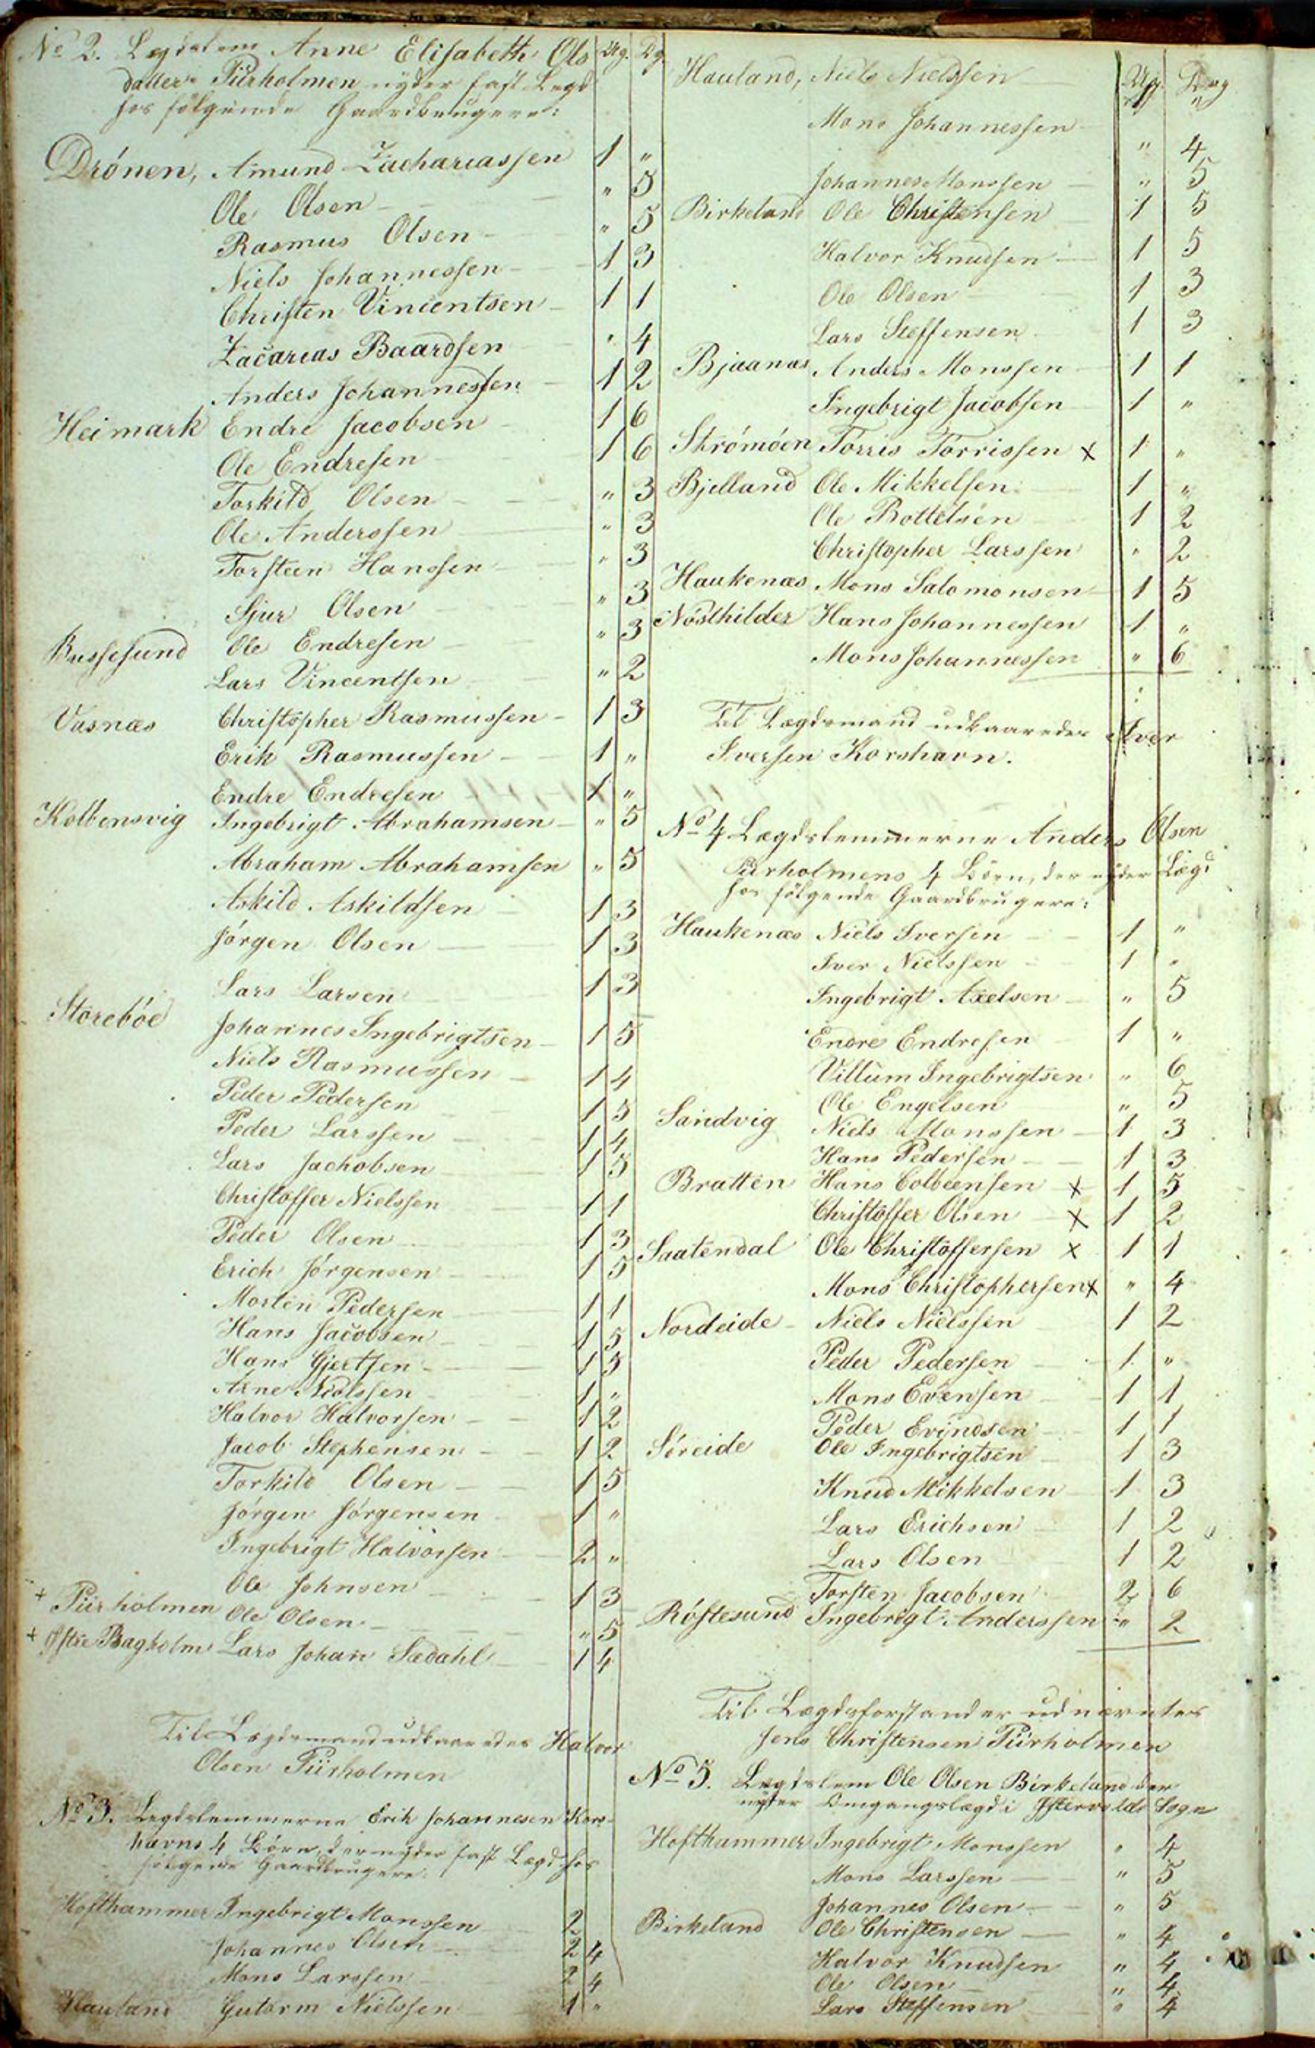 No 2. Lægdslem Anne Elisabeth Ols Ug. Dg.
datter Piirholmen nyder fast Lægd
hos følgende Gaardbrugere:
Drónen, Amund Zachariassen 1 "
Ole Olsen " 5
Rasmus Olsen " 5
Niels Johannessen 1 3
Christen Vincentsen 1 1
Zacarias Baardsen " 4
Anders Johannessen 1 2
Heimark Endre Jacobsen 1 6
Ole Endresen 1 6
Torkild Olsen " 3
Ole Anderssen " 3
Torsteen Hanssen " 3
Sjur Olsen " 3
Bussesund Ole Endresen " 3
Lars Vincentsen " 2
Vasnæs Christopher Rasmussen 1 3
Erik Rasmussen 1 "
Endre Endresen 1 "
Kolbensvig Ingebrigt Abrahamsen " 5
Abraham Abrahamsen " 5
Askild Askildsen 1 3
Jørgen Olsen 1 3
Lars Larsen 1 3
Storebóe Johannes Ingebrigtsen 1 5
Niels Rasmussen 1 4
Peder Pedersen 1 5
Peder Larssen 1 4
Lars Jachobsen 1 5
Christoffer Nielssen 1 1
Peder Olsen 1 3
Erich Jørgensen 1 5
Morten Pedersen 1 1
Hans Jacobsen 1 5
Hans Gjertsen 1 5
Arne Nielssen 1 "
Halvor Halvorsen 1 2
Jacob Stephensen 1 2
Torkild Olsen 1 5
Jørgen Jørgensen 1 "
Ingebrigt Halvorsen 2 "
Ole Johnsen 1 3
+ Piirholmen Ole Olsen " 5
+ Østre Bagholm Lars Johan Sædahl 1 4
Til Lægdsmand udkaaredes Halvor
Olsen Piirholmen
No 3. Lægdslemmerne Erik Johannesen Kors-
havns 4 Børn, der nyder fast Lægd hos
følgende Gaardbrugere:
Hofthammer Ingebrigt Monssen 2
Johannes Olsen 2 4
Mons Larssen 2 4
Hauland Gutorm Nielssen 1 "
Hauland, Niels Nielssen Ug. Dag
Mons Johannessen " 4
Johannes Monssen " 5
Birkeland Ole Christensen 1 5
Halvor Knudsen 1 5
Ole Olsen 1 3
Lars Steffensen 1 3
Bjaanæs Anders Monssen 1 1
Ingebrigt Jacobsen 1 "
Strómóen Torris Torrissen x 1 "
Bjelland Ole Mikkelsen 1 "
Ole Bottelsen 1 2
Christopher Larssen " 2
Haukenæs Mons Salomonsen 1 5
Nósthilder Hans Johannessen 1 "
Mons Johannessen " 6
Til Lægdsmand udkaaredes Iver
Iversen Korshavn.
No 4 Lægdslemmerne Anders Olsen
Piirholmens 4 Børn, der nyder Lægd
hos følgende Gaardbrugere:
Haukenæs Niels Iversen 1 "
Iver Nielssen 1 "
Ingebrigt Axelsen " 5
Endre Endresen 1 "
Villum Ingebrigtsen " 6
Ole Engelsen " 5
Sandvig Niels Monssen 1 3
Hans Pedersen 1 3
Bratten Hans Colbeensen x 1 5
Christoffer Olsen x 1 2
Saatendal Ole Christoffersen x 1 1
Mons Christophersen x " 4
Nordeide Niels Nielssen 1 2
Peder Pedersen 1 "
Mons Evensen 1 1
Peder Evindsen 1 1
Søreide Ole Ingebrigtsen 1 3
Knud Mikkelsen 1 3
Lars Erichsen 1 2
Lars Olsen 1 2
Torsten Jacobsen 2 6
Røftesund Ingebrigt Anderssen " 2
Til Lægdsforstander udnævntes
Jens Christensen Piirholmen
No 5. Lægdslem Ole Olsen Birkeland der
nyder Omgangslægd i Østervolds Sogn
Hofthammer Ingebrigt Monssen " 4
Mons Larssen " 5
Johannes Olsen " 5
Birkeland Ole Christensen " 4
Halvor Knudsen " 4
Ole Olsen " 4
Lars Steffensen " 4